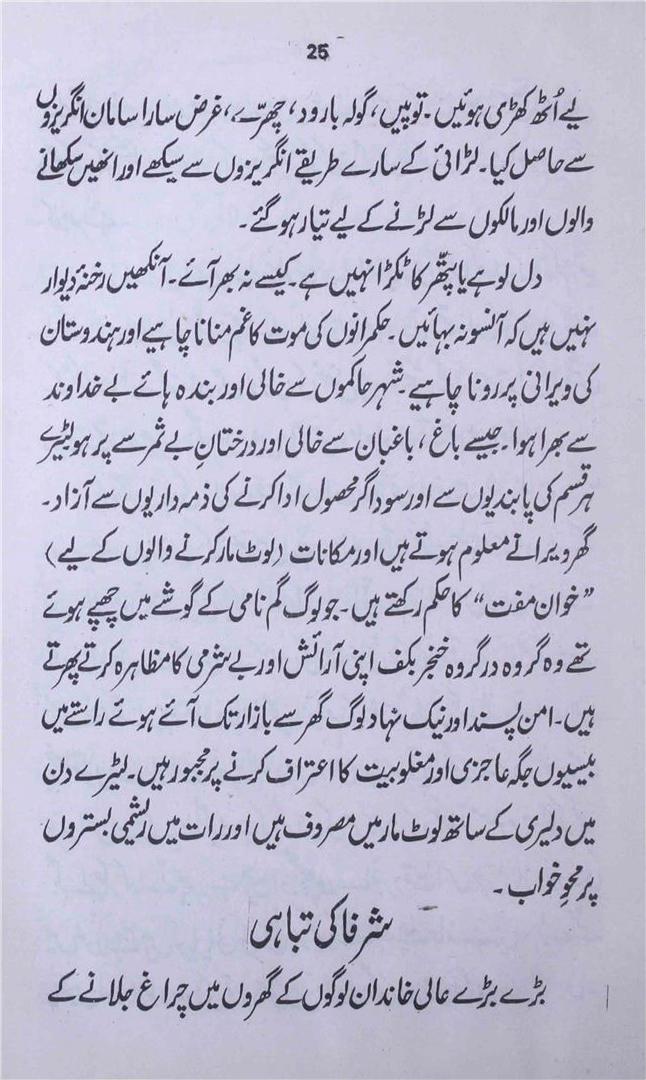 25
لیے اُٹھ کھڑی ہوئیں۔ توپیں، گولہ بارود، چھرّے، غرض سارا سامان انگریزوں
سے حاصل کیا۔ لڑائی کے سارے طریقے انگریزوں سے سیکھے اور انھیں سکھانے
والوں اور مالکوں سے لڑنے کے لیے تیار ہو گئے۔
دل لوہے یا پتھّر کا ٹکڑا نہیں ہے۔ کیسے نہ بھر آئے۔ آنکھیں رخنۂ دیوار
نہیں ہیں کہ آنسو نہ بہائیں۔ حکمرانوں کی موت کا غم منانا چاہیے اور ہندوستان
کی ویرانی پر رونا چاہیے۔ شہر حاکموں سے خالی اور بندہ ہائے بے خداوند
سے بھرا ہوا۔ جیسے باغ، باغبان سے خالی اور درختانِ بے ثمر سے پر ہو لٹیرے
ہر قسم کی پابندیوں سے اور سوداگر محصول ادا کرنے کی ذمہ داریوں سے آزاد۔
گھر ویرانے معلوم ہوتے ہیں اور مکانات (لوٹ مار کرنے والوں کے لیے)
”خوان مفت“ کا حکم رکھتے ہیں۔ جو لوگ گم نامی کے گوشے میں چھپے ہوئے
تھے وہ گروہ در گروہ خنجر بکف اپنی آرائش اور بے شرمی کا مظاہرہ کرتے پھرتے
ہیں۔ امن پسند اور نیک نہاد لوگ گھر سے بازار تک آئے ہوئے راستے میں
بیسیوں جگہ عاجزی اور مغلوبیت کا اعتراف کرنے پر مجبور ہیں۔ لٹیرے دن
میں دلیری کے ساتھ لوٹ مار میں مصروف ہیں اور رات میں ریشمی بستروں
پر محوِ خواب۔
شرفا کی تباہی
بڑے بڑے عالی خاندان لوگوں کے گھروں میں چراغ جلانے کے